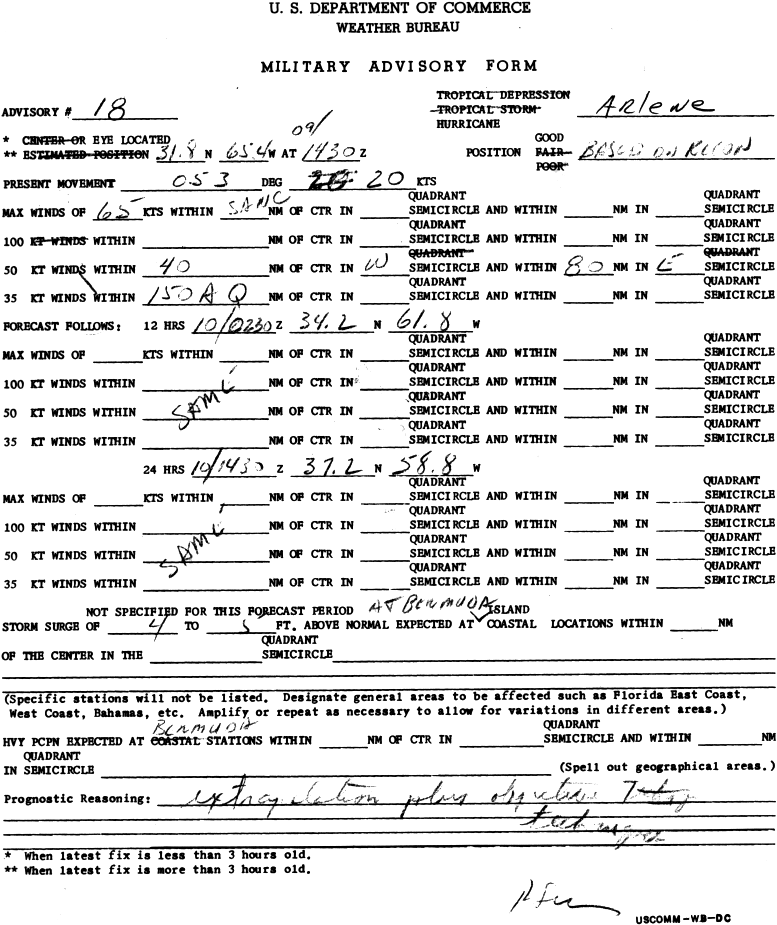 U. S. DEPARTMENT OF COMMERCE
WEATHER BUREAU
MILITARY ADVISORY FORM
ADVISORY # 18 TROPICAL DEPRESSION TROPICAL STORM HURRICANE Arlene
* CENTER OR EYE LOCATED
** ESTIMATED POSITION 31.8 N 65.4W AT 09/1430 Z POSITION GOOD FAIR POOR BASED ON RECON
PRESENT MOVEMENT 053 DEG 20 KTS
QUADRANT QUADRANT
MAX WINDS OF 65 KTS WITHIN SAME NM OF CTR IN SEMICIRCLE AND WITHIN NM IN SEMICIRCLE
QUADRANT QUADRANT
100 KT WINDS WITHIN NM OF CTR IN SEMICIRCLE AND WITHIN NM IN SEMICIRCLE
QUADRANT QUADRANT
50 KT WINDS WITHIN 40 NM OF CTR IN W SEMICIRCLE AND WITHIN 80 NM IN E SEMICIRCLE
QUADRANT QUADRANT
35 KT WINDS WITHIN 150 A Q NM OF CTR IN SEMICIRCLE AND WITHIN NM IN SEMICIRCLE
FORECAST FOLLOWS: 12 HRS 10/0230 Z 34.2 N 61.8 W
QUADRANT QUADRANT
MAX WINDS OF KTS WITHIN NM OF CTR IN SEMICIRCLE AND WITHIN NM IN SEMICIRCLE
QUADRANT QUADRANT
100 KT WINDS WITHIN NM OF CTR IN SEMICIRCLE AND WITHIN NM IN SEMICIRCLE
SAME
QUADRANT QUADRANT
50 KT WINDS WITHIN NM OF CTR IN SEMICIRCLE AND WITHIN NM IN SEMICIRCLE
QUADRANT QUADRANT
35 KT WINDS WITHIN NM OF CTR IN SEMICIRCLE AND WITHIN NM IN SEMICIRCLE
24 HRS 10/1430 Z 37.2 N 58.8 W
QUADRANT QUADRANT
MAX WINDS OF KTS WITHIN NM OF CTR IN SEMICIRCLE AND WITHIN NM IN SEMICIRCLE
QUADRANT QUADRANT
100 KT WINDS WITHIN NM OF CTR IN SEMICIRCLE AND WITHIN NM IN SEMICIRCLE
SAME
QUADRANT QUADRANT
50 KT WINDS WITHIN NM OF CTR IN SEMICIRCLE AND WITHIN NM IN SEMICIRCLE
QUADRANT QUADRANT
35 KT WINDS WITHIN NM OF CTR IN SEMICIRCLE AND WITHIN NM IN SEMICIRCLE
NOT SPECIFIED FOR THIS FORECAST PERIOD AT BERMUDA ISLAND
STORM SURGE OF 4 TO 5 FT. ABOVE NORMAL EXPECTED AT COASTAL LOCATIONS WITHIN NM
QUADRANT
OF THE CENTER IN THE SEMICIRCLE
(Specific stations will not be listed. Designate general areas to be affected such as Florida East Coast,
West Coast, Bahamas, etc. Amplify or repeat as necessary to allow for variations in different areas.)
BERMUDA QUADRANT
HVY PCPN EXPECTED AT COASTAL STATIONS WITHIN NM OF CTR IN SEMICIRCLE AND WITHIN NM
QUADRANT
IN SEMICIRCLE (Spell out geographical areas.)
Prognostic Reasoning: extrapolation plus objective
techniques
* When latest fix is less than 3 hours old.
** When latest fix is more than 3 hours old.
USCOMM-WB-DC